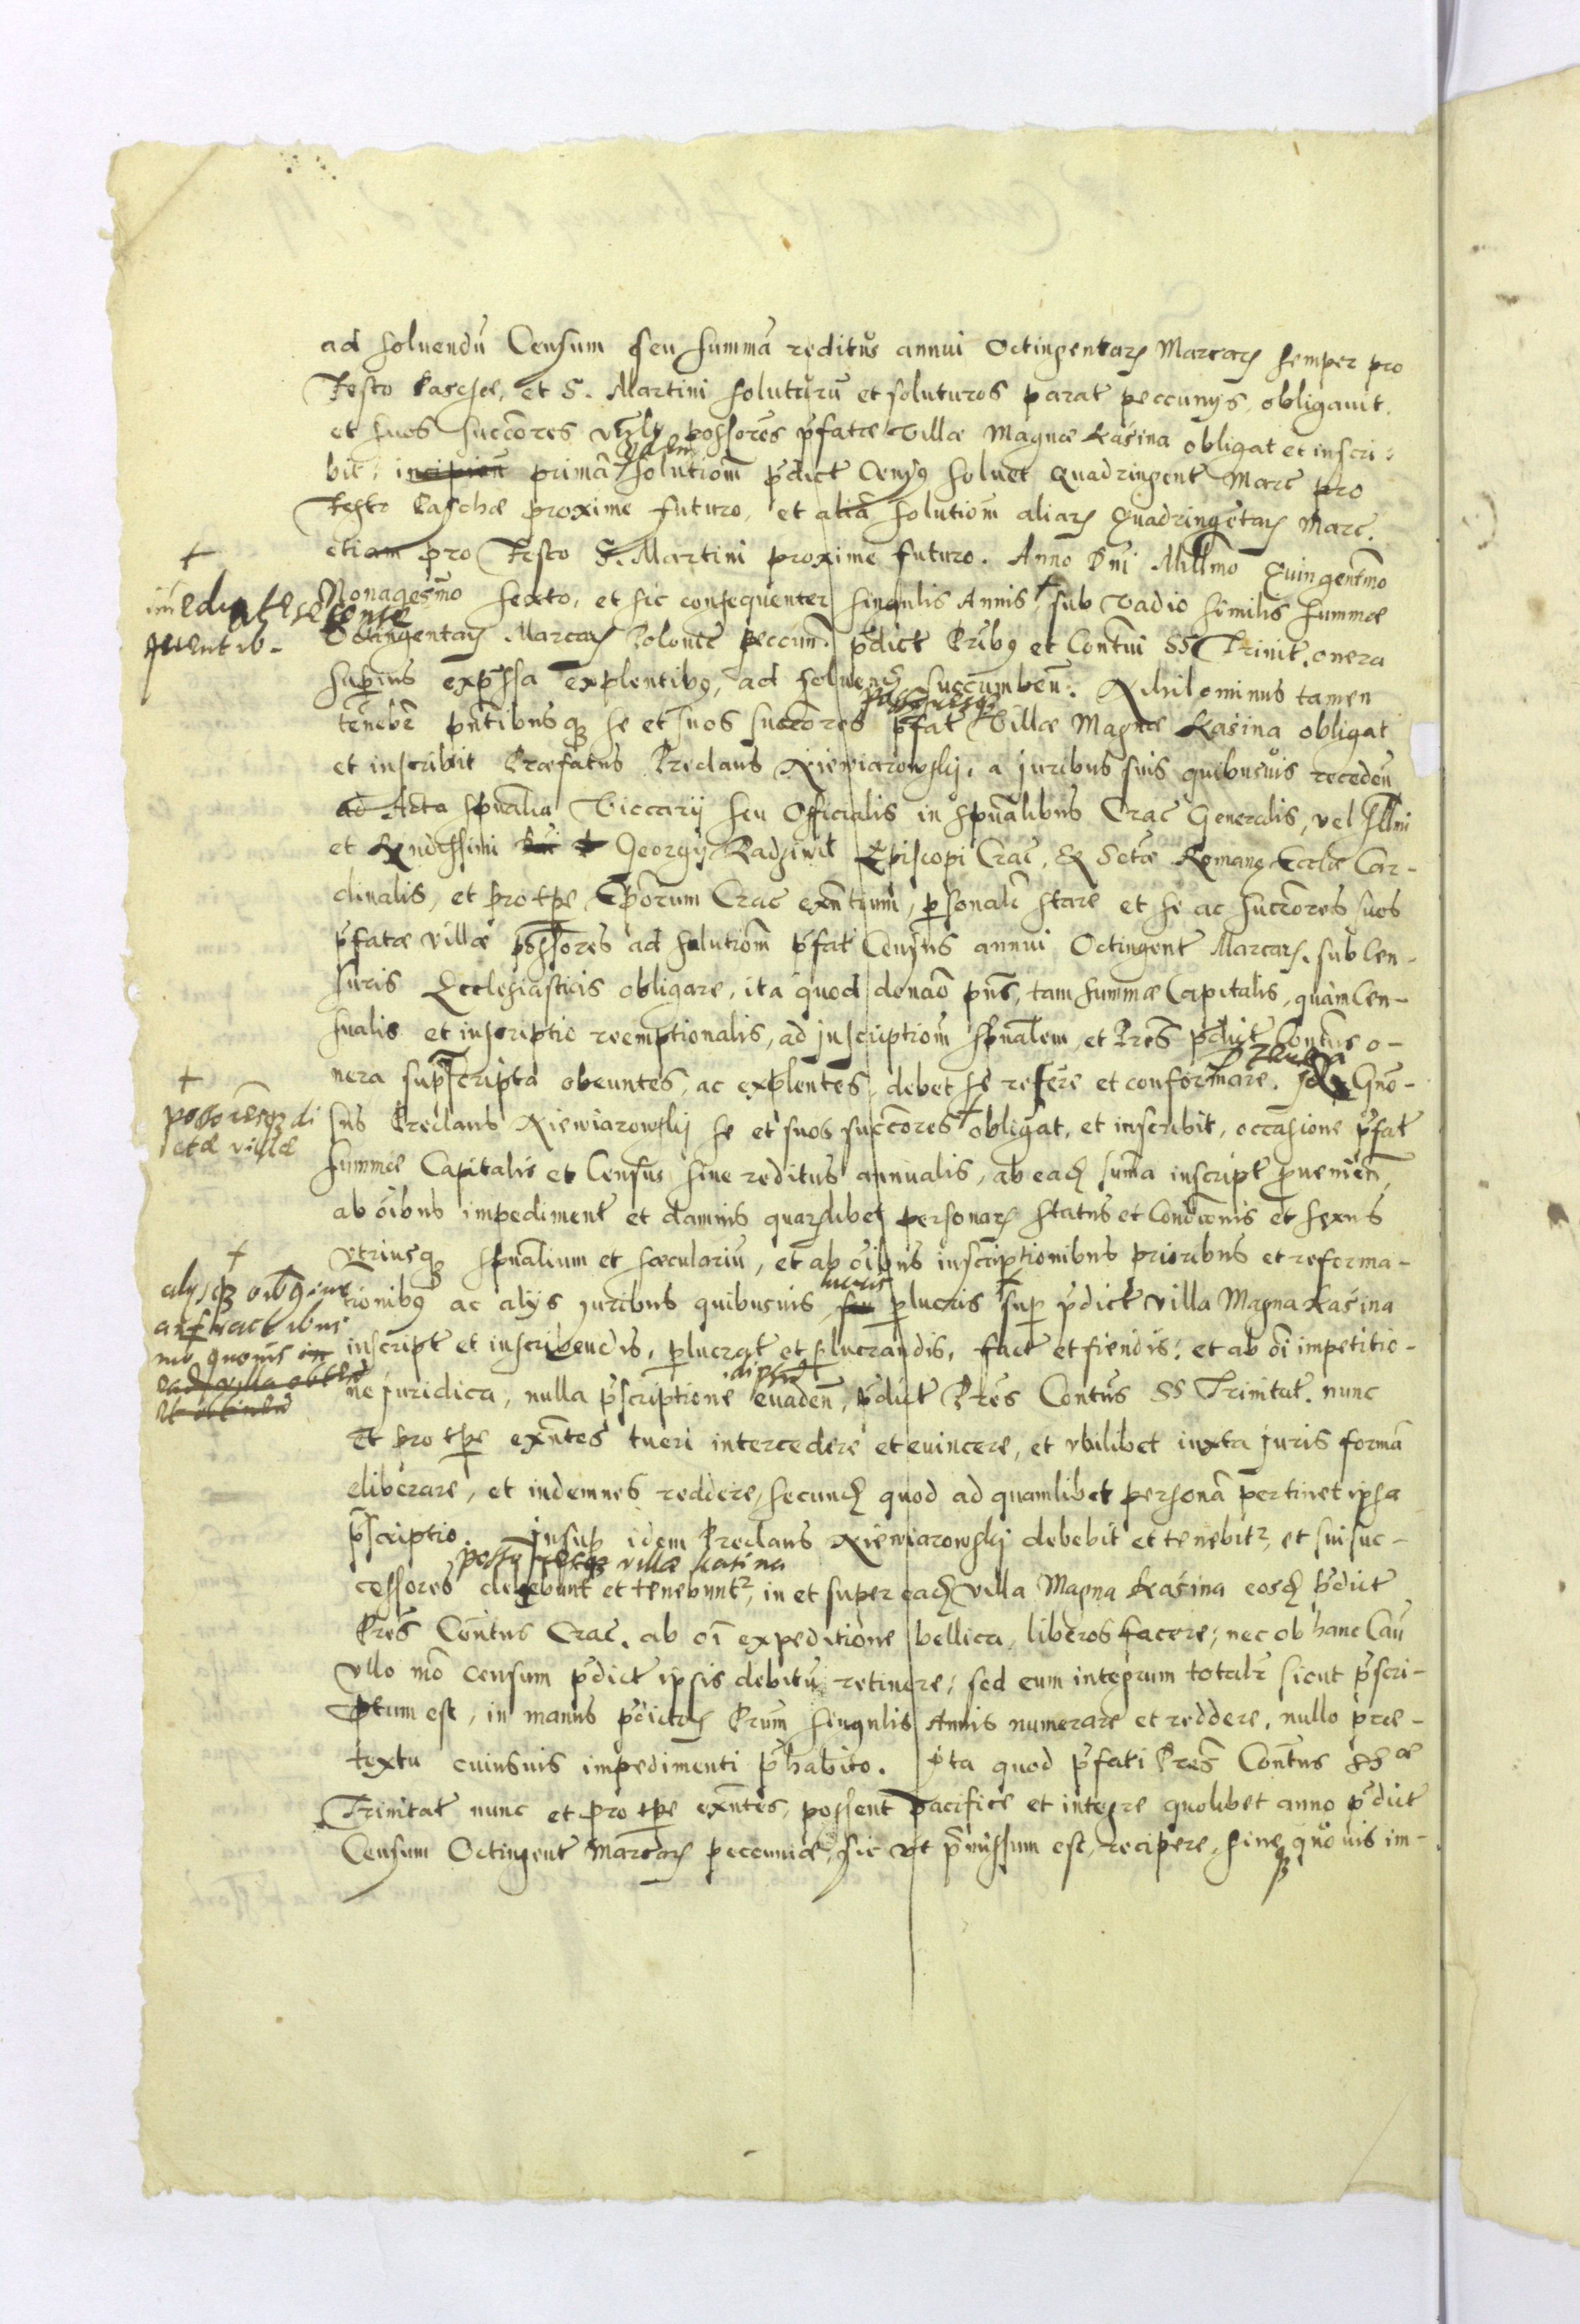 ad soluendū Censum seu summā reditus annui Octingentarꝝ Marcarꝝ semper pro
Festo Paschæ, et S. Martini soluturū et soluturos parat peccunijs, obligauit,
et suos succōres possōres p̄fatæ Villæ Magnæ Kasina obligat et inscri:
bit, incipien̄ primā solutiōm p̄dict Censꝯ soluet Quadringent Marc pro
Festo Paschæ proxime futuro, et aliā solutiōm aliarꝝ Quadringētarꝝ Marc.
etiam pro Festo S. Martini proxime futuro. Anno Dn̄i Mill̄mo Quingentm̄o
+
im̄ediate se conse
quentib-
Nonagesm̄o sexto, et sic consequenter singulis Annis + sub Vadio similis summæ
Octingentarꝝ Marcarꝝ Polonic peccun. p̄dict Prībꝯ et Conūi SS Trinit. onera
superius exp̄ssa explentibꝯ, ad soluend succumben̄. Nihilominus tamen
tenebr̄ pn̄tibusqꝫ se et suos succōres possoresqꝫ p̄fat Villæ Magnæ Kasina obligat
et inscribit Præfatus Preclaus Niewiarowskij, a juribus suis quibusuis receden̄
ad Acta sp̄ualia Viccarij seu Officialis in sp̄ualibus Crac Generalis, vel Illm̄i
et Rn̄dissimi Georgij Radziwil Episcopi Crac, S Sctæ Romanę Eccl̄æ Car-
dinalis, et pro tp̄e Ep̄orum Crac exn̄tium, personalr̄ stare et se ac succōres suos
p̄fatæ villæ possōres ad solutiōm p̄fat Census annui Octingent Marcarꝝ. sub Cen-
suris Ecclesiasticis obligare, ita quod donaō pn̄s, tam summæ Capitalis, quàm Cen-
sualis et inscriptio reemptionalis, ad inscriptiōm sp̄ualem, et Pres̄ p̄dict Conūtus o-
nera supscripta obeuntes, ac explentes, debet se refere et conformare. Gn̄o-
+
possōresqꝫ di
ctæ villæ
sus Preclaus Niewiarowskij se et suos succōres + obligat, et inscribit, occasione p̄fat
summæ Capitalis et Census siue reditus annualis, ab eadꝫ sum̄a inscript prouenien̄,
ab oībus impediment et damnis quarꝝlibet personarꝝ status et Condōnis et sexus
Vtriusqꝫ sp̄ualium et sæculariū, et ab oībus inscriptionibus prioribus et reforma-
+
alijsqꝫ oībꝯ siue
anfractibus
mō quouis in
eadꝫ villa obten
tionibꝯ ac alijs juribus quibusuis seu perlucris + sup p̄dict villa Magna Kasina
inscript et inscribendis, perlucrat et perlucrandis, fact et fiendis: et ab oī impetitio-
ne juridica, nulla p̄scriptione euaden̄, p̄dict Pres̄ Conūtus SS Trinitat. nunc
Et pro tp̄e exn̄tes tueri intercedere et euincere, et vbilibet iuxta juris formā
eliberare, et indemnes reddere, secundꝫ quod ad quamlibet personā pertinet ipsa
p̄scriptio. Insup idem Preclaus Niewiarowskij debebit et tenebit², et sui suc-
possoresqꝫ villæ Kasina
cessores debebunt et tenebunt², in et super eadꝫ Villa Magna Kasina eosdꝫ p̄dict
Pres̄ Conūtus Crac. ab oī expeditione bellica, liberos facere; nec ob hanc Cau
vllo mō Censum p̄dict ipsis debitū retinere, sed eum integrum totalr̄ sicut p̄scri-
ptum est, in manus p̄dictorꝝ Prum̄ singulis Annis numerare et reddere, nullo præ-
textu cuiusuis impedimenti p̄habito. Ita quod p̄fati Pres̄ Conūtus SSæ
Trinitat nunc et pro tp̄e exn̄tes, possent pacifice et integre quolibet anno p̄dict
Censum Octingent Marcarꝝ peccuniæ, sic vt p̄missum est, recipere, sineqꝫ quouis im-